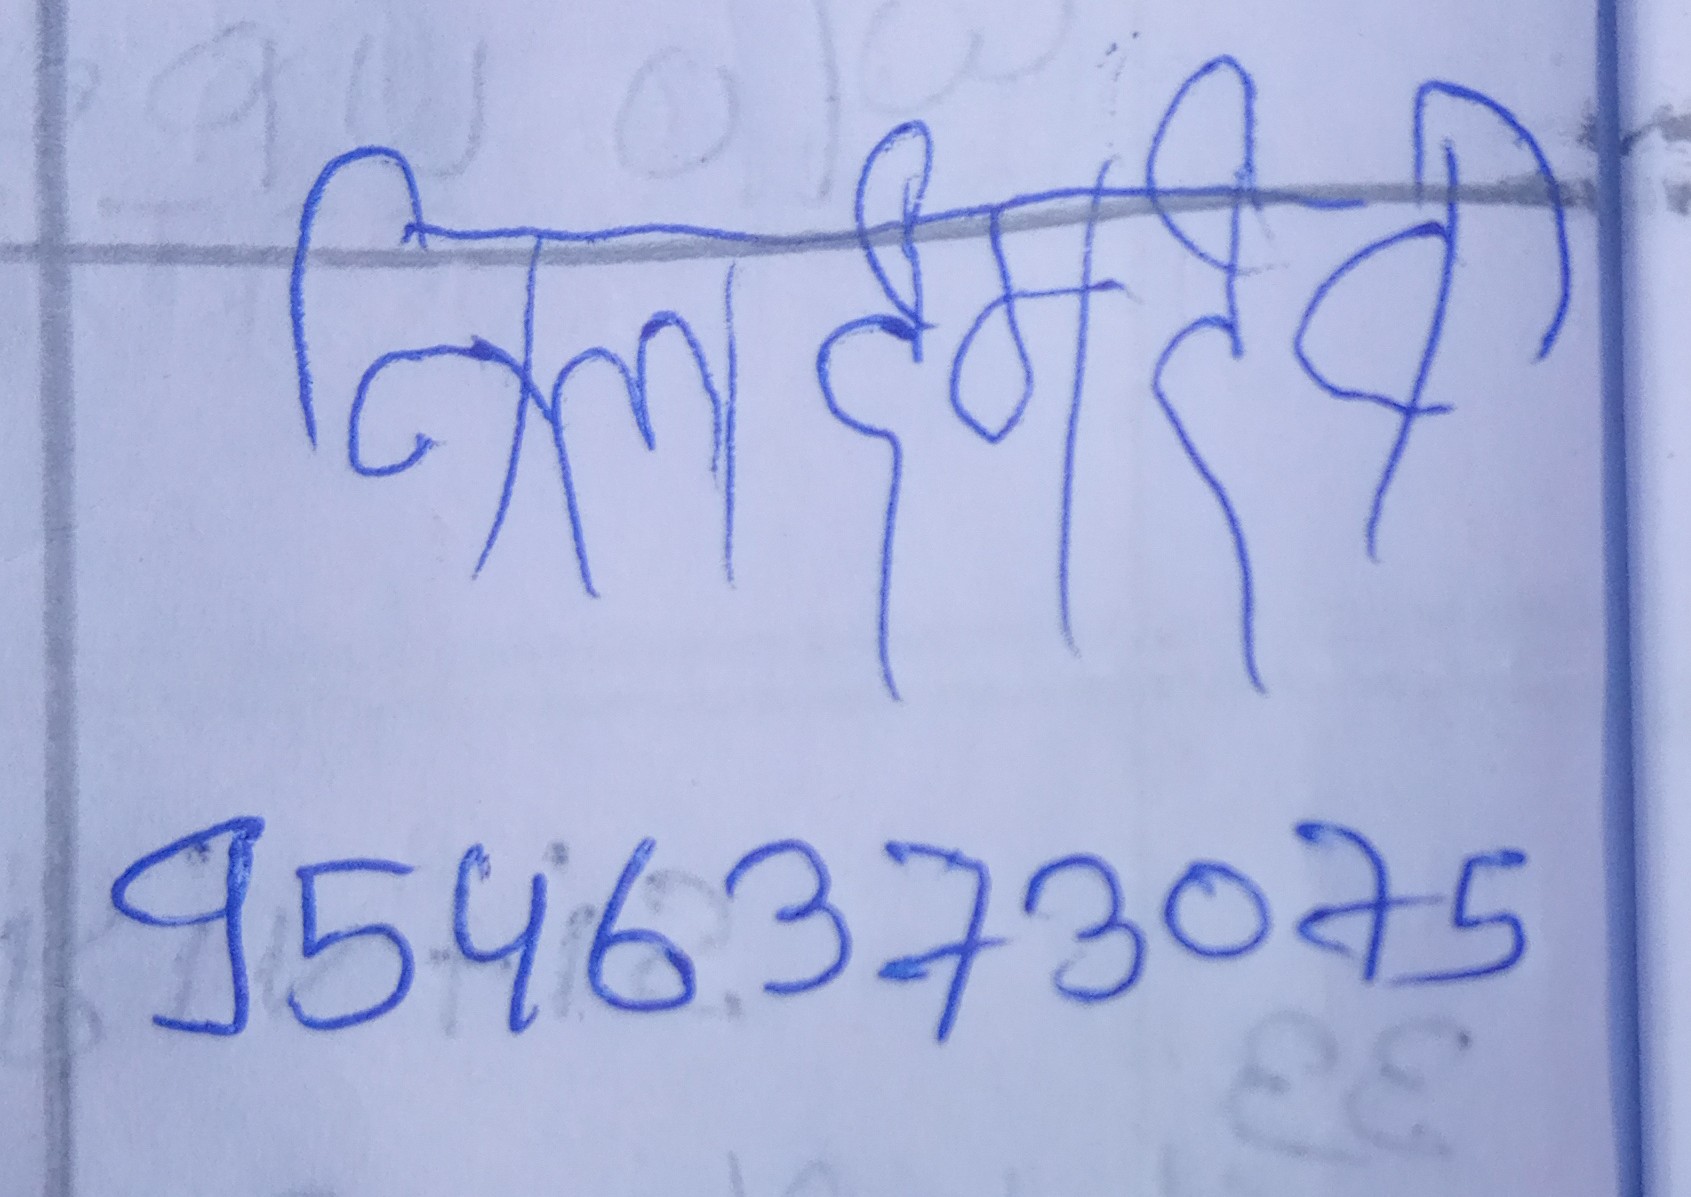 तिल देम देवी
9546373075